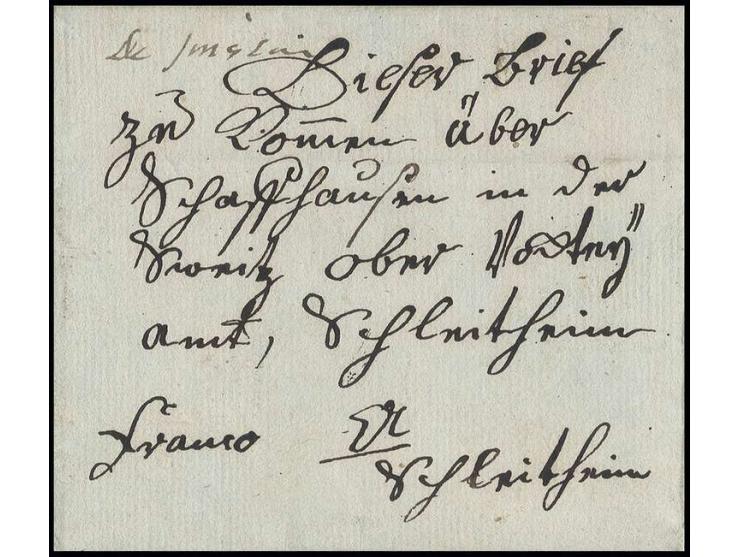 Dieser Brief
zu Kom̄en über
Schaffhausen in der
Sweitz ober Vogtey
amt, Schleitheim
Franco
Schleitheim